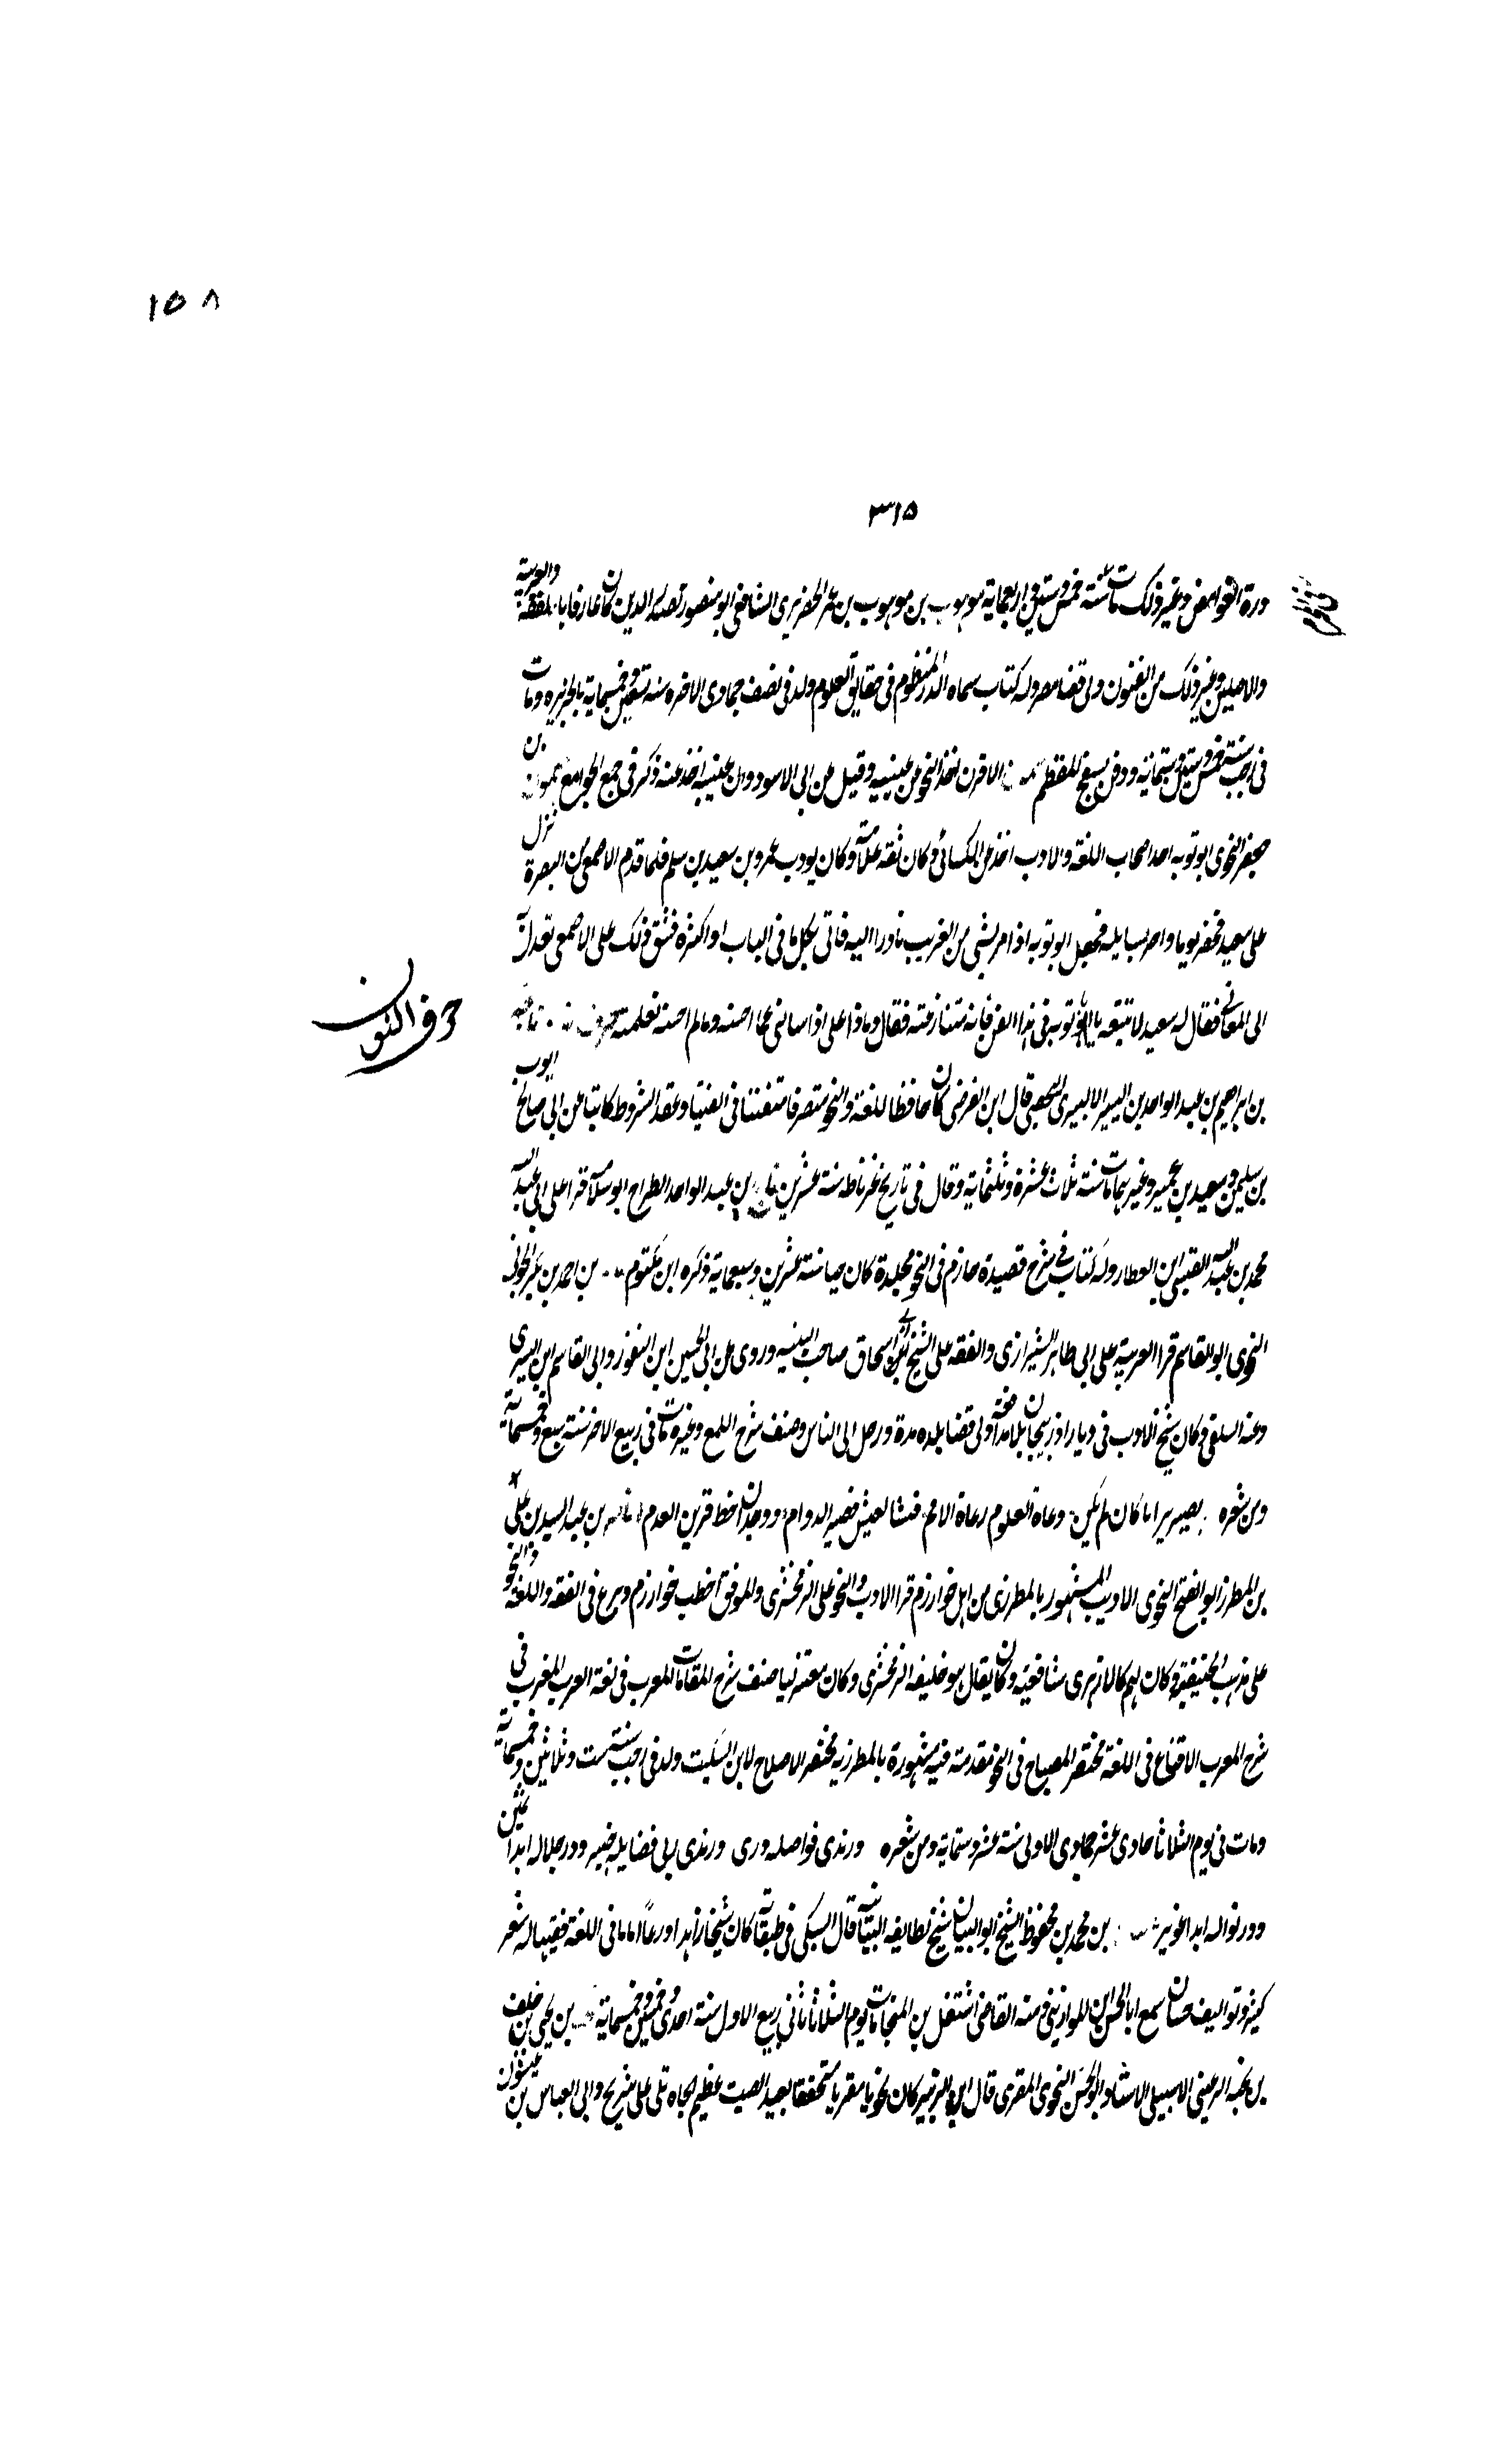 ١٥٨
٣١٥
درة الغواص وغير ذلك مات سنة خمس وستين واربعماية موهوب بن موهوب بن عمر الجزري الشافعي ابو منصور صدر الدين كان عارفا بالفقه والعربية
والاصلين وغير ذلك من الفنون ولي قضا مصر وله كتاب سماه الدر المنظوم في حقايق العلوم ولد في نصف جمادى الاخره سنه تسعين وخمسماية بالجزيره ومات
في رجب سنة خمس وستين وستماية ودفن بسفح المقطم الاقرن اخذ النحو من عنبسه وقيل عن ابي الاسود وان عنبسه اخذ عنه ذكره في جمع الجوامع ميمون بن
جعفر النحوى ابو توبه احد اصحاب اللغة والادب اخذ عن الكسائي وكان ثقه علامة وكان يودب عمرو بن سعيد بن سلم فلما قدم الاصمعي من البصرة نزل
على سعيد فحضر يوما واخر يسايله فجعل ابو توبه اذا مر بشي من الغريب بادر اليه فاتى بكل ما في الباب او اكثره فشق ذلك على الاصمعى فعدل
الى المعاني فقال له سعيد لا تتبعه يا ابا توبه في هذا الفن فانه صناعته فقال وماذا على اذا سالني عما احسنه ومالم احسنه تعلمته
حرف النون
بن ابراهيم بن عبد الواحد بن اليسير الالبيرى اليحصبي قال ابن الفرضى كان حافظا للغة والنحو متصرفا متفننا في الفتيا وعقد الشروط كاتبا عن ابي صالح ايوب
بن سليمن وسعيد بن خمير وغيرهما مات سنة ثلاث عشرة وثلثماية وقال في تاريخ غرناطه سنة عشرين بن عبد الواحد الطراح ابو سلامة قرا على ابي عبد الله
محمد بن عبد الله القيسي ابن العطار وله كتاب في شرح قصيدة حازم في النحو مجلدة كان حيا سنة عشرين وسبعماية ذكره ابن مكتوم بن احمد بن بكر الخويي
النحوى ابو القاسم قرا العربية على ابي طاهر الشيرازى والفقه على الشيخ ابي اسحاق صاحب التنبيه وروى عن ابي الحسين ابن النقور وابي القاسم ابن البسرى
وعنه السلفي وكان شيخ الادب في ديار اذربيجان بلا مدافعة ولي قضا بلده مدة ورحل الى الناس وصنف شرح اللمع وغيره مات في ربيع الاخر سنة سبع وخمسماية
ومن شعره بصير يرا ما كان لم يكن وعاة العلوم رعاة الامم بن عبد السيد بن علي
بن المطرز ابو الفتح النحوى الاديب المشهور بالمطرزى من اهل خوارزم قرا الادب والنحو على الزمخشرى والموفق اخطب خوارزم وبرع في الفقه واللغة والنحو
على مذهب الحنيفية وكان لهم كالازهرى للشافعية وكان يقال هو خليفه الزمخشرى وكان معتزليا صنف شرح المقامات المعرب في لغة العرب المغرب في
شرح المعرب الاقناع في اللغة مختصر المصباح في النحو مقدمة فيه مشهورة بالمطرزيه مختصر الاصلاح لابن السكيت ولد في رجب سنة ست وثلاثين وخمسماية
ومات في يوم الثلاثا حادى عشر جمادى الاولى سنة عشر وستماية ومن شعره ورندى فواضله ورى ورندى ربى فضايله نضير ودر جلاله ابدا ثمين
ودر نواله ابدا غزير بن محمد بن محفوظ الشيخ ابو البيان شيخ الطايفه البيانية قال السبكي في طبقاته كان شيخا زاهدا ورعا اماما في اللغة فقيها له شعر
كثير وتواليف حسان سمع ابا الحسن بن الموازيني ومنه القاضى مات يوم الثلاثا ثاني ربيع الاول سنة احدى وخمسين وخمسماية بن يحيى بن خلف
بن نجبه الرعيني الاشبيلي الاستاذ ابو الحسن النحوى المقرى قال ابن الزبير كان نحويا مقريا محققا بعيد الصيت عظيم الجاه تلى على شريح وابي العباس بن عيشون